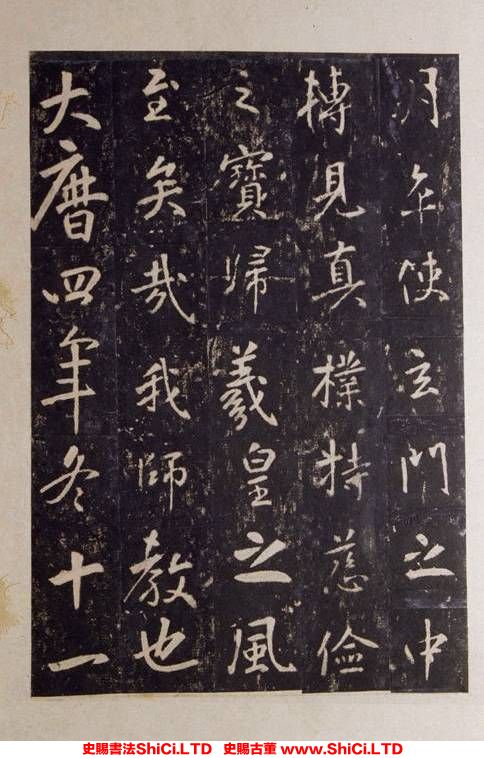 月卒使玄門之中
轉見真樸持慈儉
之寶歸羲皇之風
至矣哉我師教也
大曆四年冬十一
史賜書法ShiCi.LTD 史賜古董 www.ShiCi.LTD